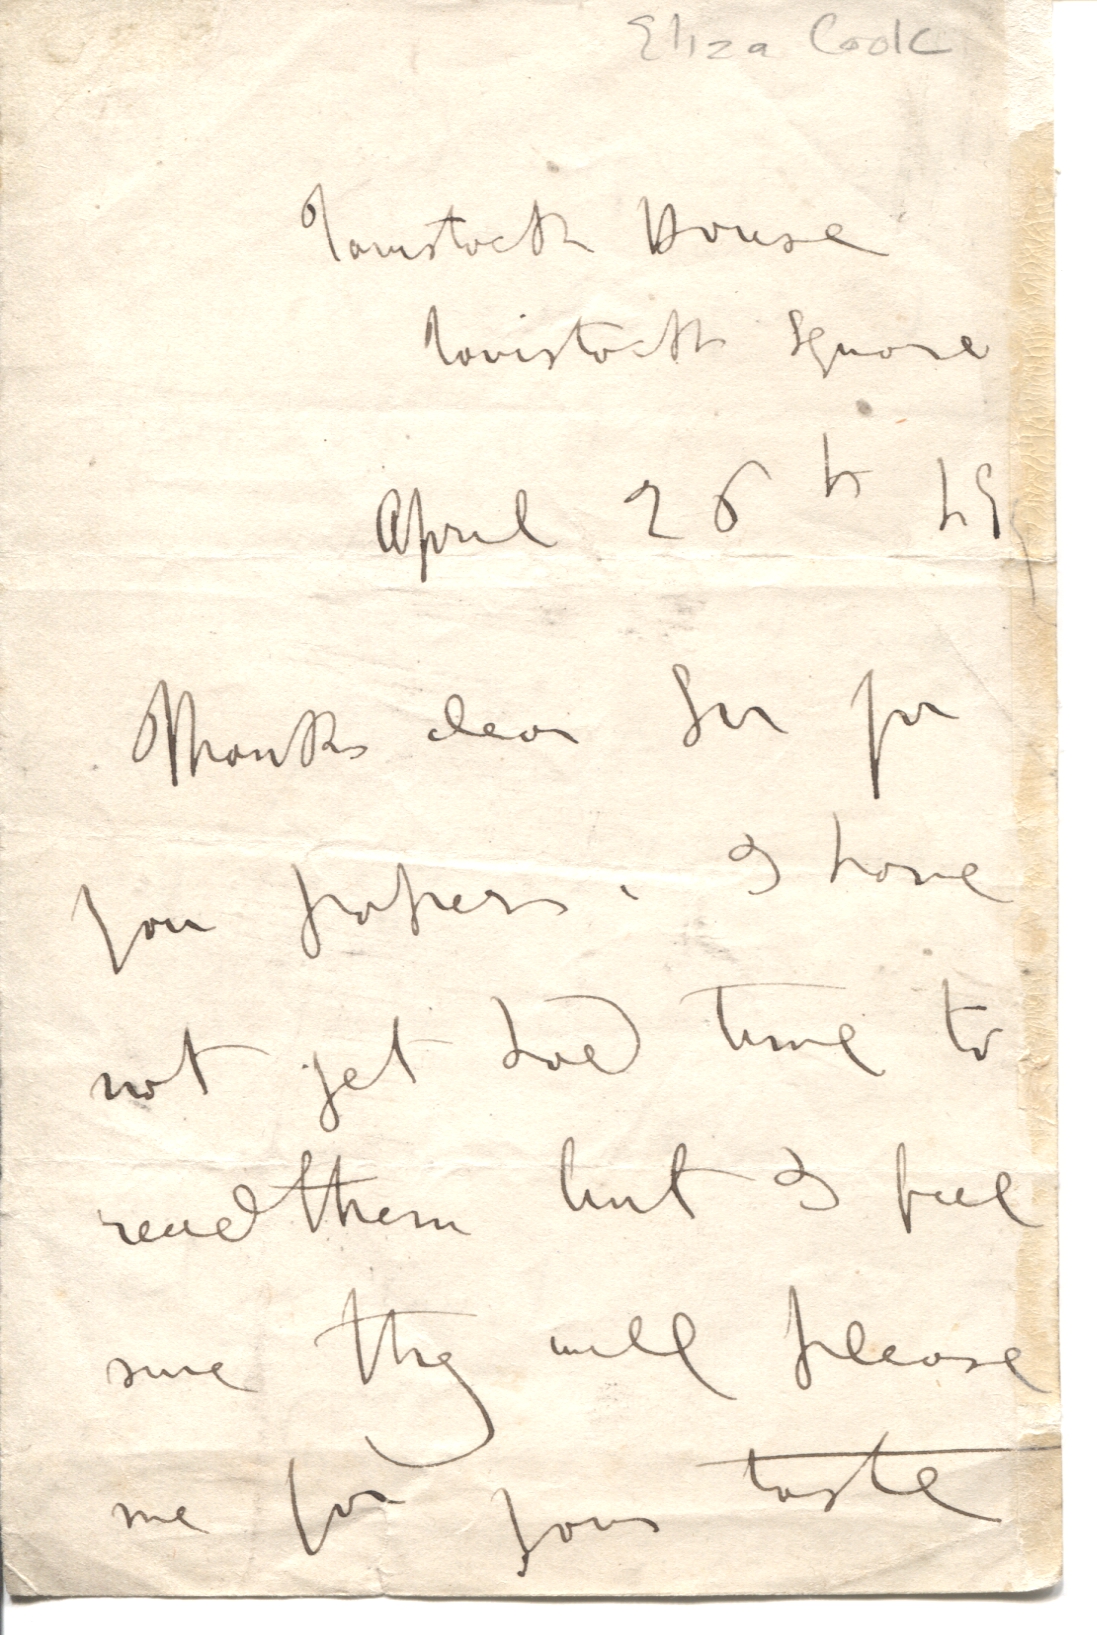 Eliza Cook
Tavistock House
Tavistock Square
April 26th 49
Thanks dear Sir for
your papers. I have
not yet had time to
read them but I feel
sure they will please
me for your taste